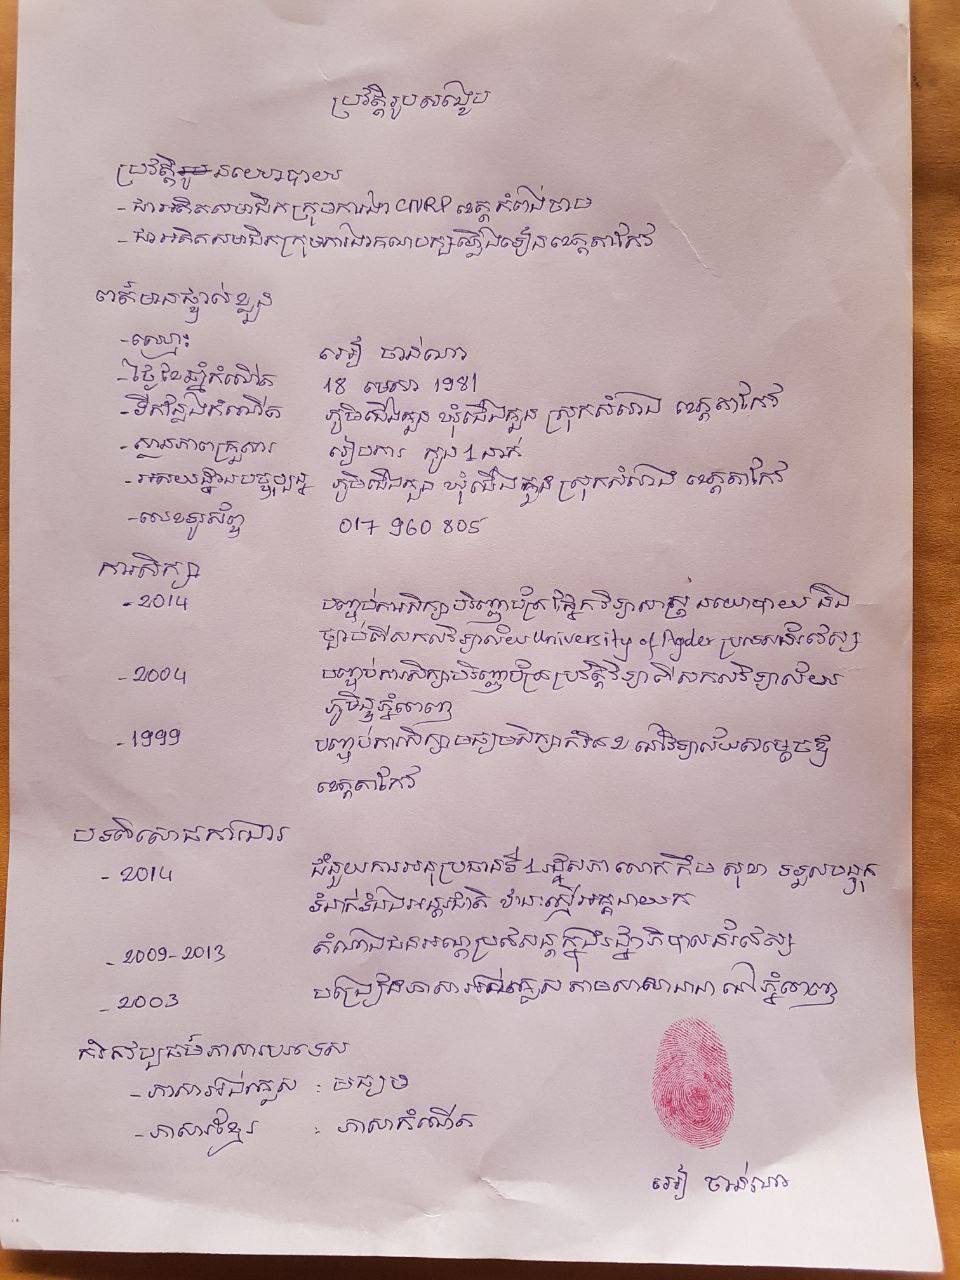 ប្រវត្តិរូបសង្ខេប
ប្រវត្តិរូបនយោបាយ
- ជាអតីតសមាជិកក្រុមការងារ CNRP ខេត្តកំពង់ចាម
- ជាអតីតសមាជិកក្រុមការងារគណបក្សភ្លើងទៀនខេត្តតាកែវ
ពត៌មានផ្ទាល់ខ្លួន
- ឈ្មោះ អៀ ចាន់ណា
- ថ្ងៃខែឆ្នាំកំណើត 18 មេសា 1981
- ទីកន្លែងកំណើត ភូមិជើងគួន ឃុំជើងគួន ស្រុកសំរោង ខេត្តតាកែវ
- ស្ថានភាពគ្រួសារ រៀបការ កូន 1 នាក់
- អាសយដ្ឋានបច្ចុប្បន្ន ភូមិជើងគួន ឃុំជើងគួន ស្រុកសំរោង ខេត្តតាកែវ
- លេខទូរស័ព្ទ 017 960 805
ការសិក្សា
- 2014 បញ្ចប់ការសិក្សាបរិញ្ញាប័ត្រ ផ្នែកវិទ្យាសាស្ត្រ នយោបាយ និង
ច្បាប់ពីសកលវិទ្យាល័យ University of Agder ប្រទេសន័រវែស
- 2004 បញ្ចប់ការសិក្សាបរិញ្ញាប័ត្រប្រវត្តិវិទ្យា ពីសកលវិទ្យាល័យ
ភូមិន្ទភ្នំពេញ
- 1999 បញ្ចប់ការសិក្សាមធ្យមសិក្សាកំរិត២ នៅវិទ្យាល័យសម្តេចឪ
ខេត្តតាកែវ
បទពិសោធការងារ
- 2014 ជំនួយការអនុប្រធានទី 1 រដ្ឋសភា លោក កឹម សុខា ទទួលបន្ទុក
ទំនាក់ទំនងអន្តរជាតិ ឋានៈស្មើអគ្គនាយក
- 2009-2013 តំណាងជនអណ្តោប្រវេសន្តក្នុងរដ្ឋាភិបាលន័រវែស
- 2003 បង្រៀនភាសាអង់គ្លេស តាមសាលានានា នៅភ្នំពេញ
កំរិតវប្បធម៌ភាសាបរទេស
- ភាសាអង់គ្លេស : មធ្យម
- ភាសាខ្មែរ : ភាសាកំណើត
អៀ ចាន់ណា